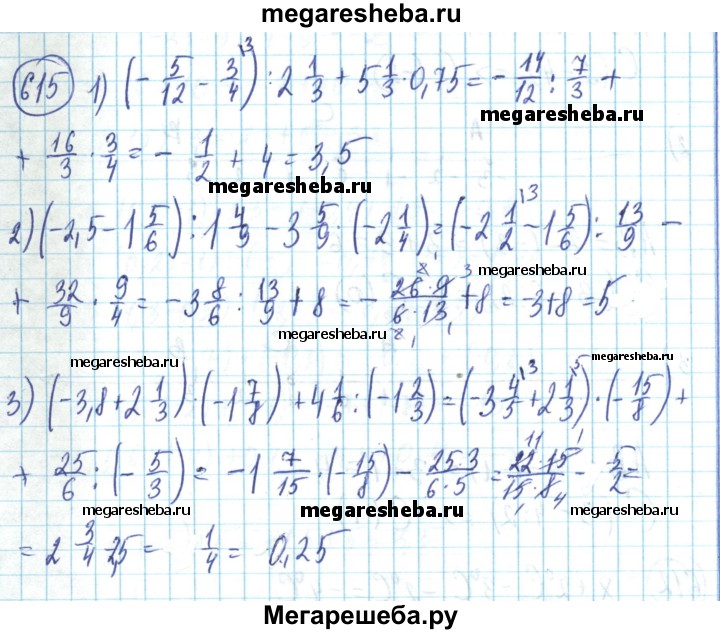 megaresheba.ru
615 1) (- 5/12 - 3/4) : 2 1/3 + 5 1/3 · 0,75 = - 14/12 : 7/3 +
megaresheba.ru
+ 16/3 · 3/4 = - 1/2 + 4 = 3,5
megaresheba.ru
2) (-2,5 - 1 5/6) : 1 4/9 - 3 5/9 · (-2 1/4) = (-2 1/2 - 1 5/6) : 13/9 -
megaresheba.ru
+ 32/9 · 9/4 = -3 8/6 : 13/9 + 8 = - 26·9/6·13 + 8 = -3+8 = 5
megaresheba.ru
megaresheba.ru megaresheba.ru
3) (-3,8 + 2 1/3) · (-1 7/8) + 4 1/6 : (-1 2/3) = (-3 4/5 + 2 1/3) · (- 15/8) +
+ 25/6 : (- 5/3) = -1 7/15 · (- 15/8) - 25·3/6·5 = 22·15/15·8 - 5/2 =
megaresheba.ru megaresheba.ru megaresheba.ru
= 2 3/4 - 2,5 = 1/4 = 0,25
Мегарешеба.ру